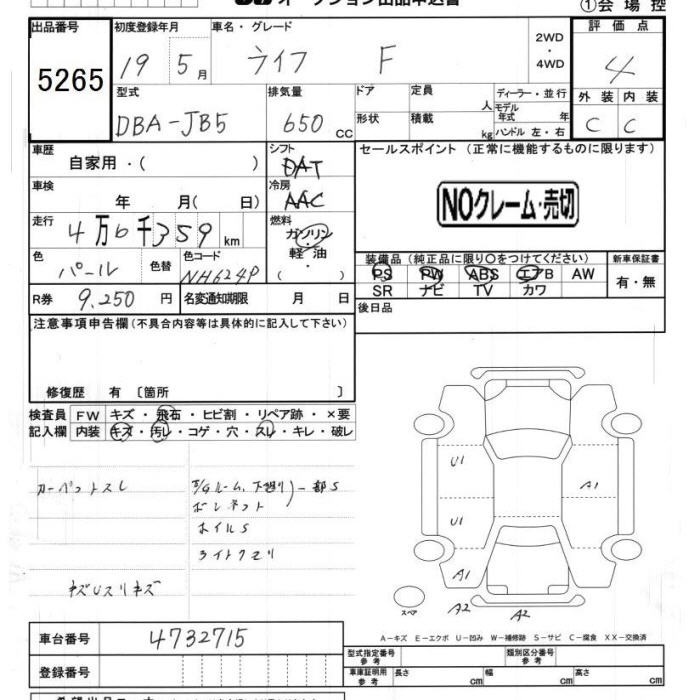 オークション出品申込書
①会場控
出品番号 初度登録年月 車名・グレード 評価点
5265 19 5月 ライフ F 2WD・4WD 4
型式 排気量 ドア 定員 人 ディーラー・並行 外装 内装
DBA-JB5 650 CC 形状 積載 kg モデル年式 年 ハンドル 左・右 C C
車歴 シフト セールスポイント (正常に機能するものに限ります)
自家用・( ) DAT
車検 冷房 NOクレーム・売切
年 月( 日) AAC
走行 燃料
4万6千359km ガソリン・軽油・( )
色 色替 色コード 装備品 (純正品に限り○をつけてください) 新車保証書
パール NH624P PS PW ABS エアB AW 有・無
R券 9,250円 名変通知期限 月 日 SR ナビ TV カワ
注意事項申告欄(不具合内容等は具体的に記入して下さい) 後日品
修復歴 有 〔箇所 〕
検査員 FW キズ・飛石・ヒビ割・リペア跡・×要
記入欄 内装 キズ・汚レ・コゲ・穴・スレ・キレ・破レ
カーペットスレ
下廻り)一部S
ボンネット
ホイルS
ライトクモリ
U1
A1
U1
A1
スペア A2 A2
A-キズ E-エクボ U-凹み W-補修跡 S-サビ C-腐食 XX-交換済
車台番号 4732715 型式指定番号 参考 類別区分番号 参考
登録番号 車庫証明用 参考 長さ cm 幅 cm 高さ cm